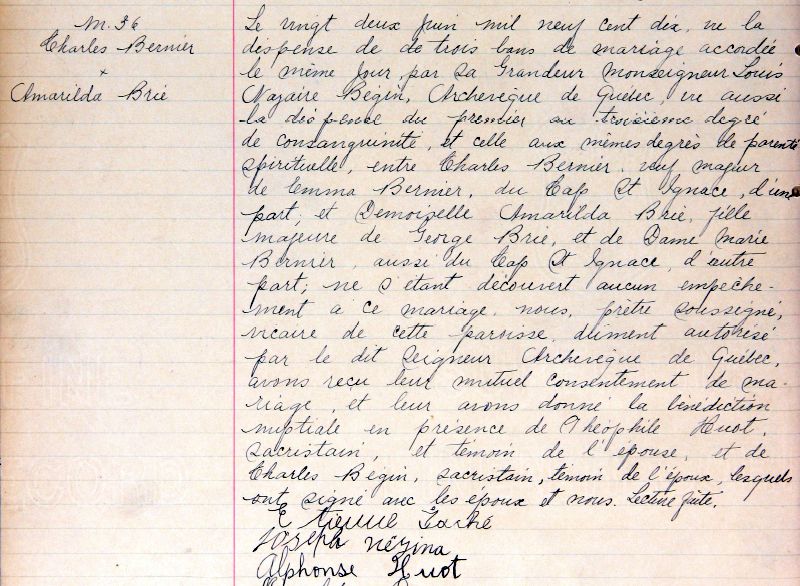 M. 36
Charles Bernier
+
Amarilda Brie
Le vingt deux Juin mil neuf cent dix, vu la
dispense de de trois bans de mariage accordée
le même Jour, par Sa Grandeur Monseigneur Louis
Nazaire Begin, Archevêque de Québec, vu aussi
la dispense du premier au troisième degré
de consanguinité, et celle aux mêmes degrés de parenté
spirituelle, entre Charles Bernier, veuf majeur
de Emma Bernier, du Cap St Ignace, d'une
part, et Demoiselle Amarilda Brie, fille
majeure de George Brie, et de Dame Marie
Bernier, aussi du Cap St Ignace, d'autre
part; ne s'étant découvert aucun empeche-
ment a ce mariage, nous, prêtre soussigné,
vicaire de cette paroisse, dûment autorisé
par le dit Seigneur Archevêque de Québec,
avons reçu leur mutuel consentement de ma-
riage, et leur avons donné la bénédiction
nuptiale en présence de Théophile Huot,
sacristain, et témoin de l'épouse, et de
Charles Begin, sacristain, témoin de l'époux, lesquels
ont signé avec les époux et nous. Lecture faite.
Etienne
Joseph Nézina
Alphonse Huot